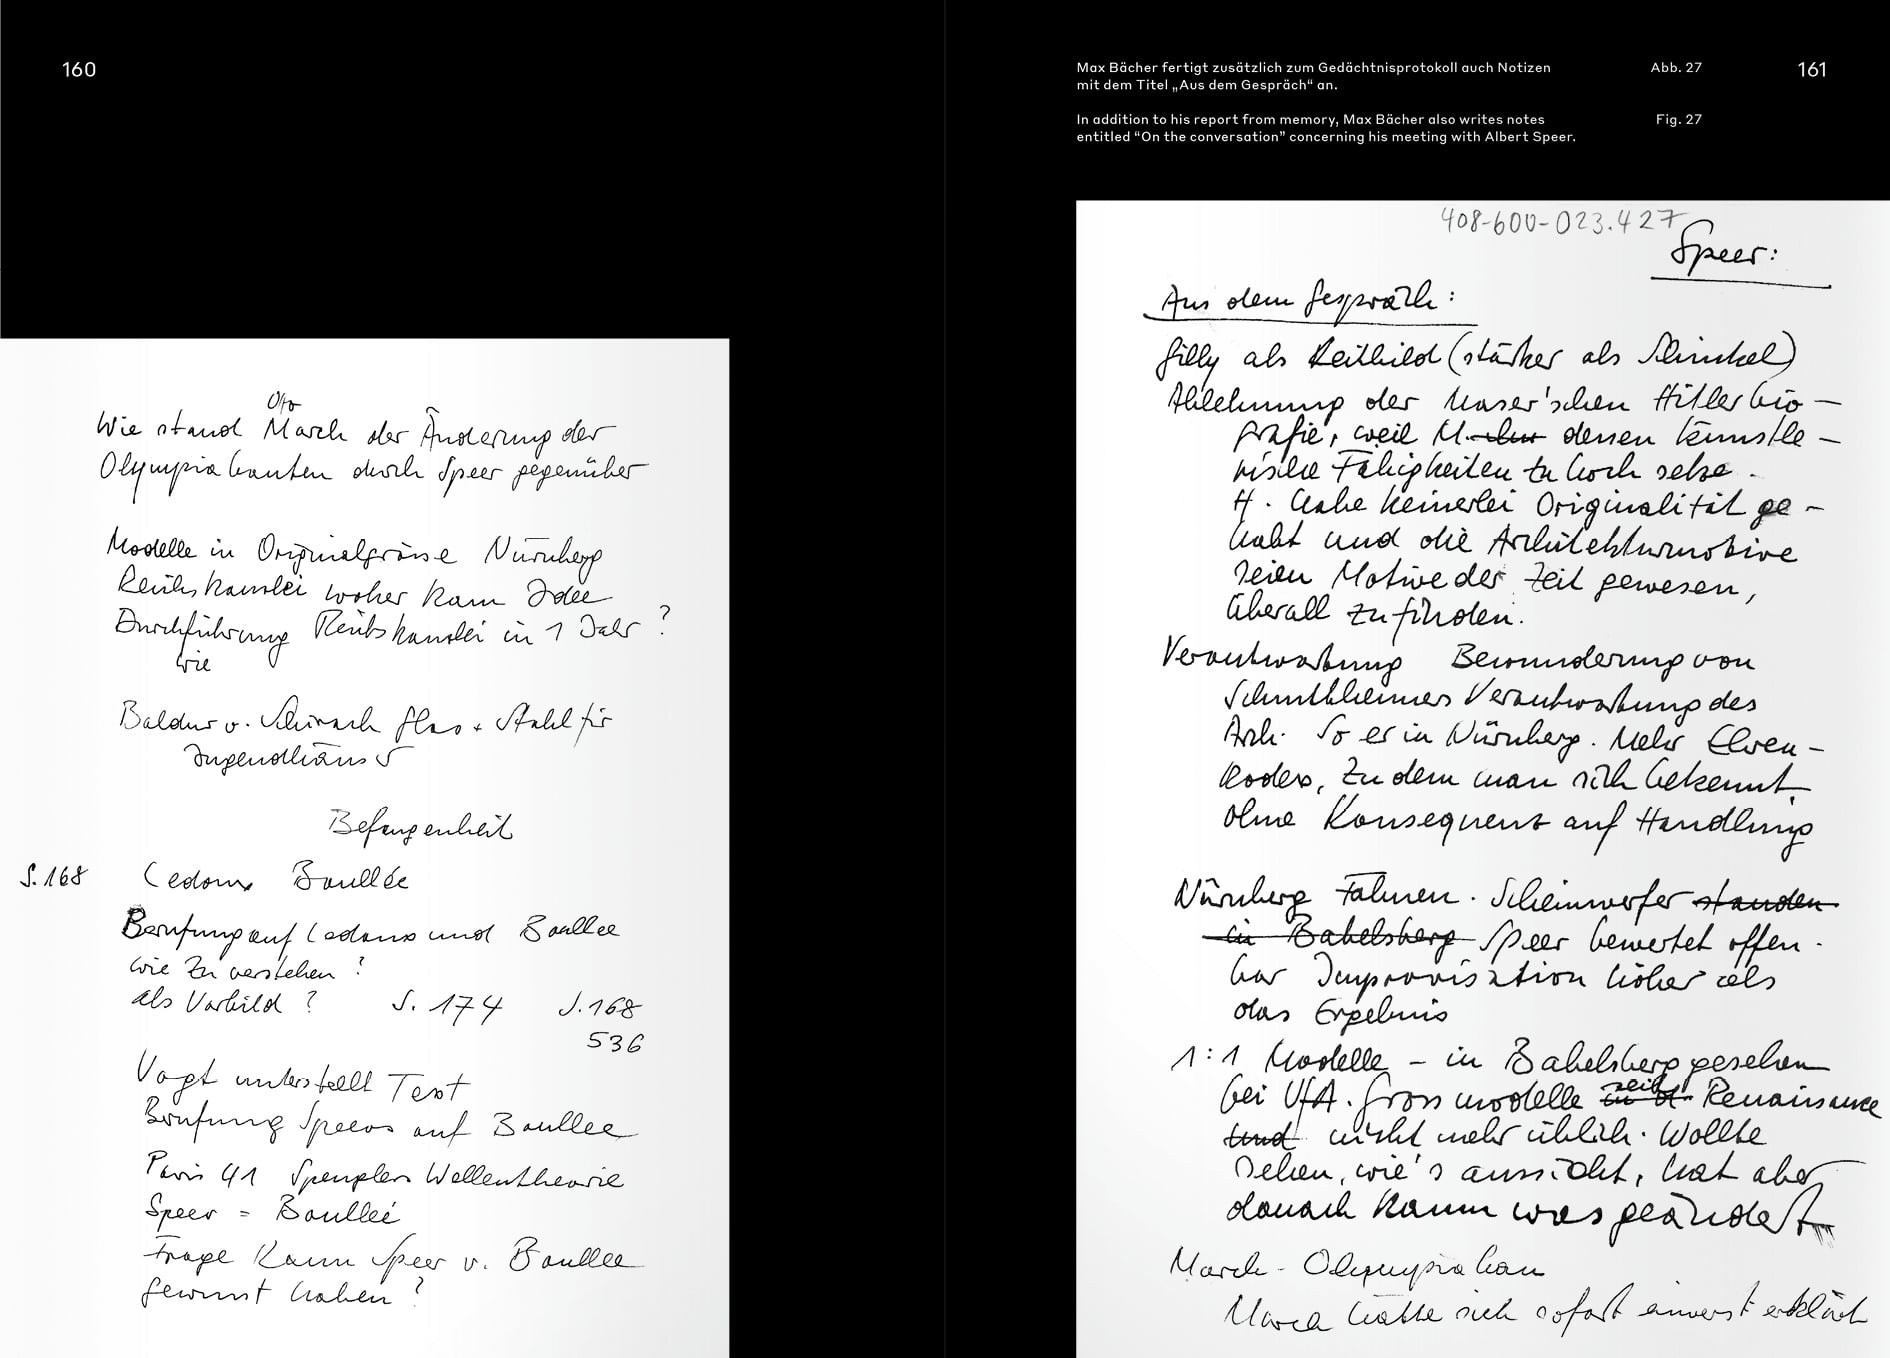 160
Otto
Wie stand March der Änderung der
Olympiabauten durch Speer gegenüber
Modelle in Originalgrösse Nürnberg
Reichskanzlei woher kam Idee
Durchführung Reichskanzlei in 1 Jahr ?
wie
Baldur v. Schirach Glas + Stahl für
Jugendhäuser
Befangenheit
S. 168 Ledoux Boullée
Berufung auf Ledoux und Boullee
wie zu verstehen ?
als Vorbild ? S. 174 S. 168
536
Vogt unterstellt Text
Berufung Speers auf Boullee
Paris 41 Spenglers Wellentheorie
Speer = Boullée
Frage Kann Speer v. Boullee
gewusst haben ?
Max Bächer fertigt zusätzlich zum Gedächtnisprotokoll auch Notizen
mit dem Titel „Aus dem Gespräch“ an.
Abb. 27
161
In addition to his report from memory, Max Bächer also writes notes
entitled “On the conversation” concerning his meeting with Albert Speer.
Fig. 27
408-600-023.427
Speer:
Aus dem Gespräch:
Gilly als Leitbild (stärker als Schinkel)
Ablehnung der Maser'schen Hitlerbio-
grafie, weil M. dessen künstle-
rische Fähigkeiten zu hoch setze.
H. habe keinerlei Originalität ge-
habt und die Architekturmotive
seien Motive der Zeit gewesen,
überall zu finden.
Verantwortung Bewunderung von
Schmitthenners Verantwortung des
Arch. So er in Nürnberg. Mehr Ehren-
kodex, zu dem man sich bekennt,
ohne Konsequenz auf Handlung
Nürnberg Fahnen. Scheinwerfer standen
in Babelsberg Speer bewertet offen-
bar Improvisation höher als
das Ergebnis
1:1 Modelle – in Babelsberg gesehen
bei UfA. Grossmodelle seit Renaissance
und nicht mehr üblich. Wollte
sehen, wie's aussieht, hat aber
danach kaum was geändert
March - Olympiabau
March hätte sich sofort einverst erklärt